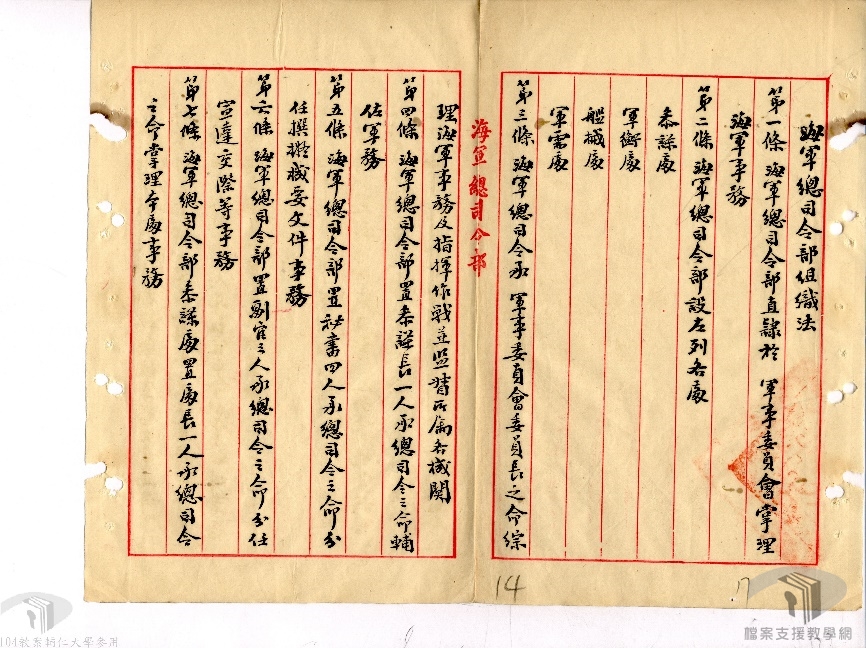 海軍總司令部組織法
第一條 海軍總司令部直隸於 軍事委員會掌理
海軍事務
第二條 海軍總司令部設左列各處
參謀處
軍衡處
艦械處
軍需處
第三條 海軍總司令承 軍事委員會委員長之命綜
海軍總司令部
理海軍事務及指揮作戰並監督所屬各機關
第四條 海軍總司令部置參謀長一人承總司令之命輔
佐軍務
第五條 海軍總司令部置秘書四人承總司令之命分
任撰擬機要文件事務
第六條 海軍總司令部置副官三人承總司令之命分任
宣達交際等事務
第七條 海軍總司令部參謀處置處長一人承總司令
之命掌理本處事務
14
檔案支援教學網
104教案輔仁大學參用